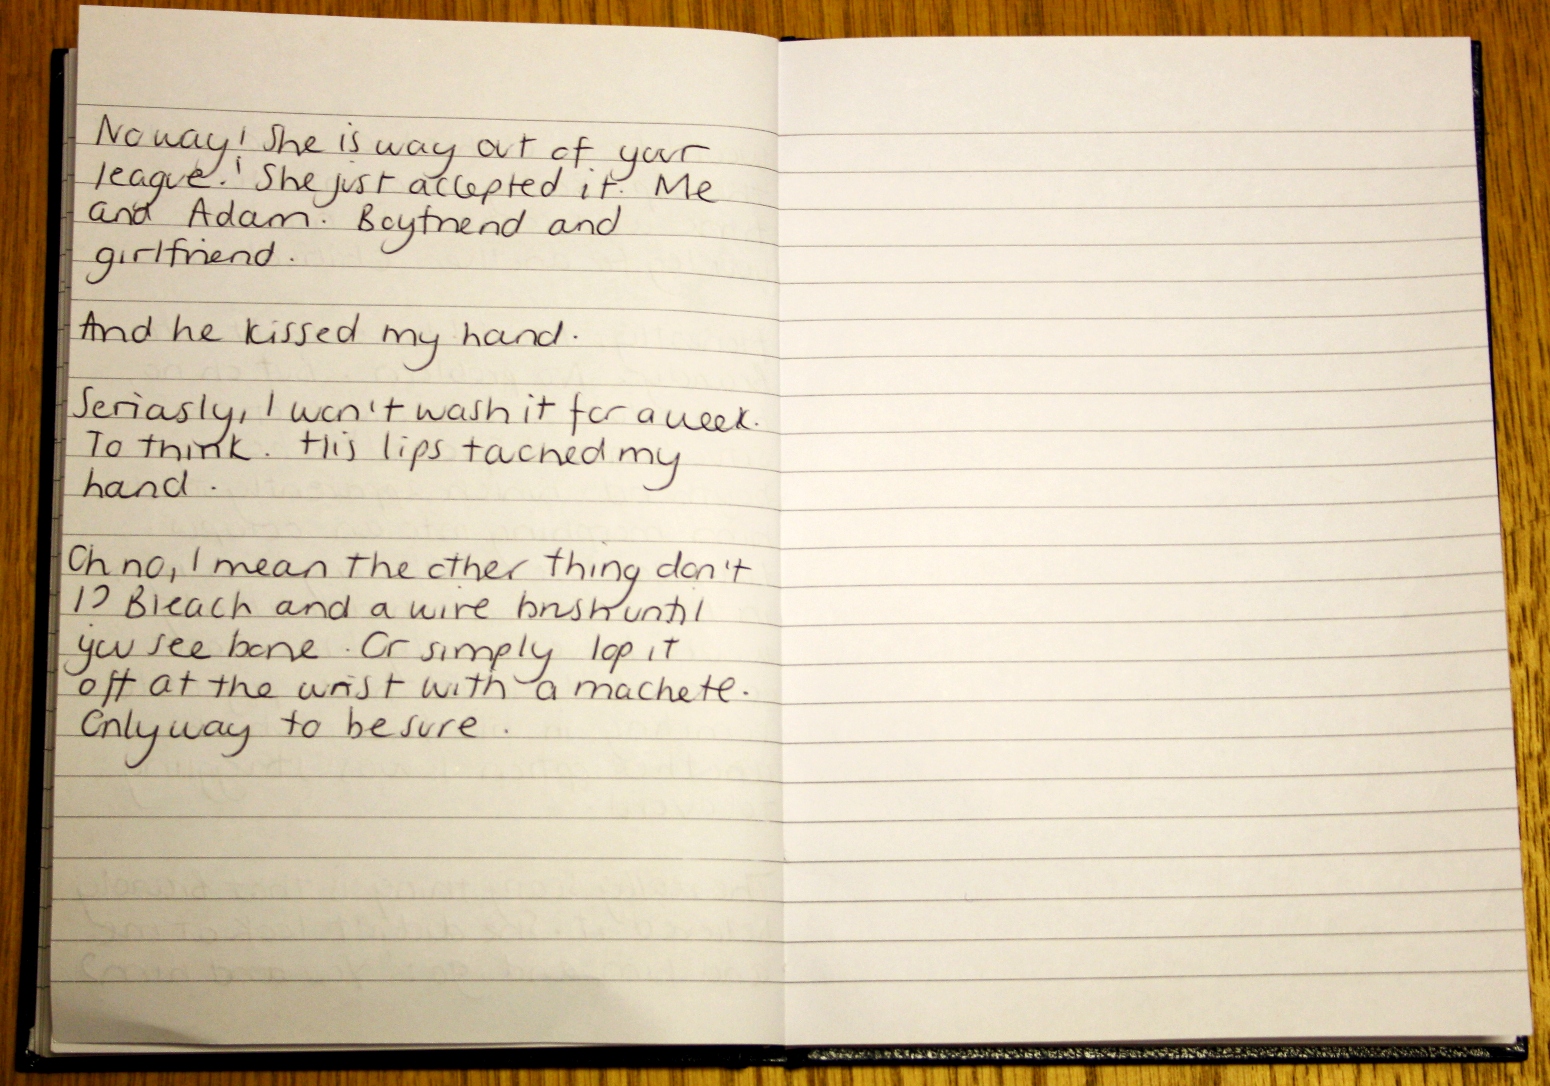 No way! She is way out of your
league.' She just accepted it. Me
and Adam. Boyfriend and
girlfriend.
And he kissed my hand.
Seriously, I won't wash it for a week.
To think. His lips touched my
hand.
Oh no, I mean the other thing don't
I? Bleach and a wire brush until
you see bone. Or simply lop it
off at the wrist with a machete.
Only way to be sure.